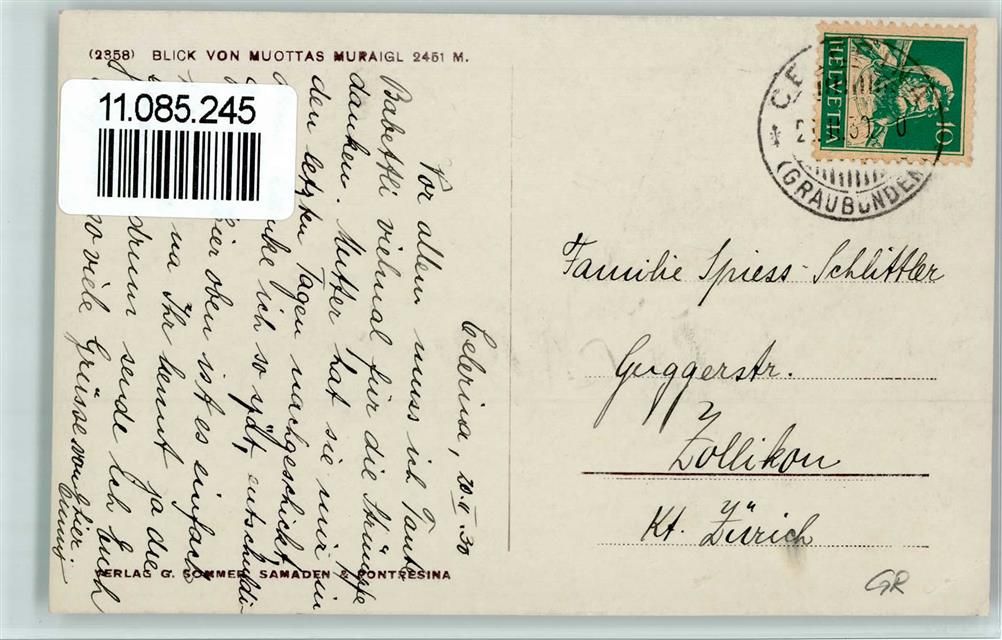 (2358) BLICK VON MUOTTAS MURAIGL 2451 M.
11.085.245
Celerina, 20.II.30
Vor allem muss ich Tante
Babettli vielmal für die Strümpfe
danken. Mutter hat sie mir in
den letzten Tagen nachgeschickt,
ich so spät, entschuldi
hier oben ist es einfach
na Ihr kennt ja de
drum sende ich Euch
so viele Grüsse von hier
VERLAG G. SOMMER, SAMADEN & PONTRESINA
HELVETIA
10
(GRAUBÜNDEN)
Familie Spiess-Schlittler
Guggerstr.
Zollikon
Kt. Zürich
GR